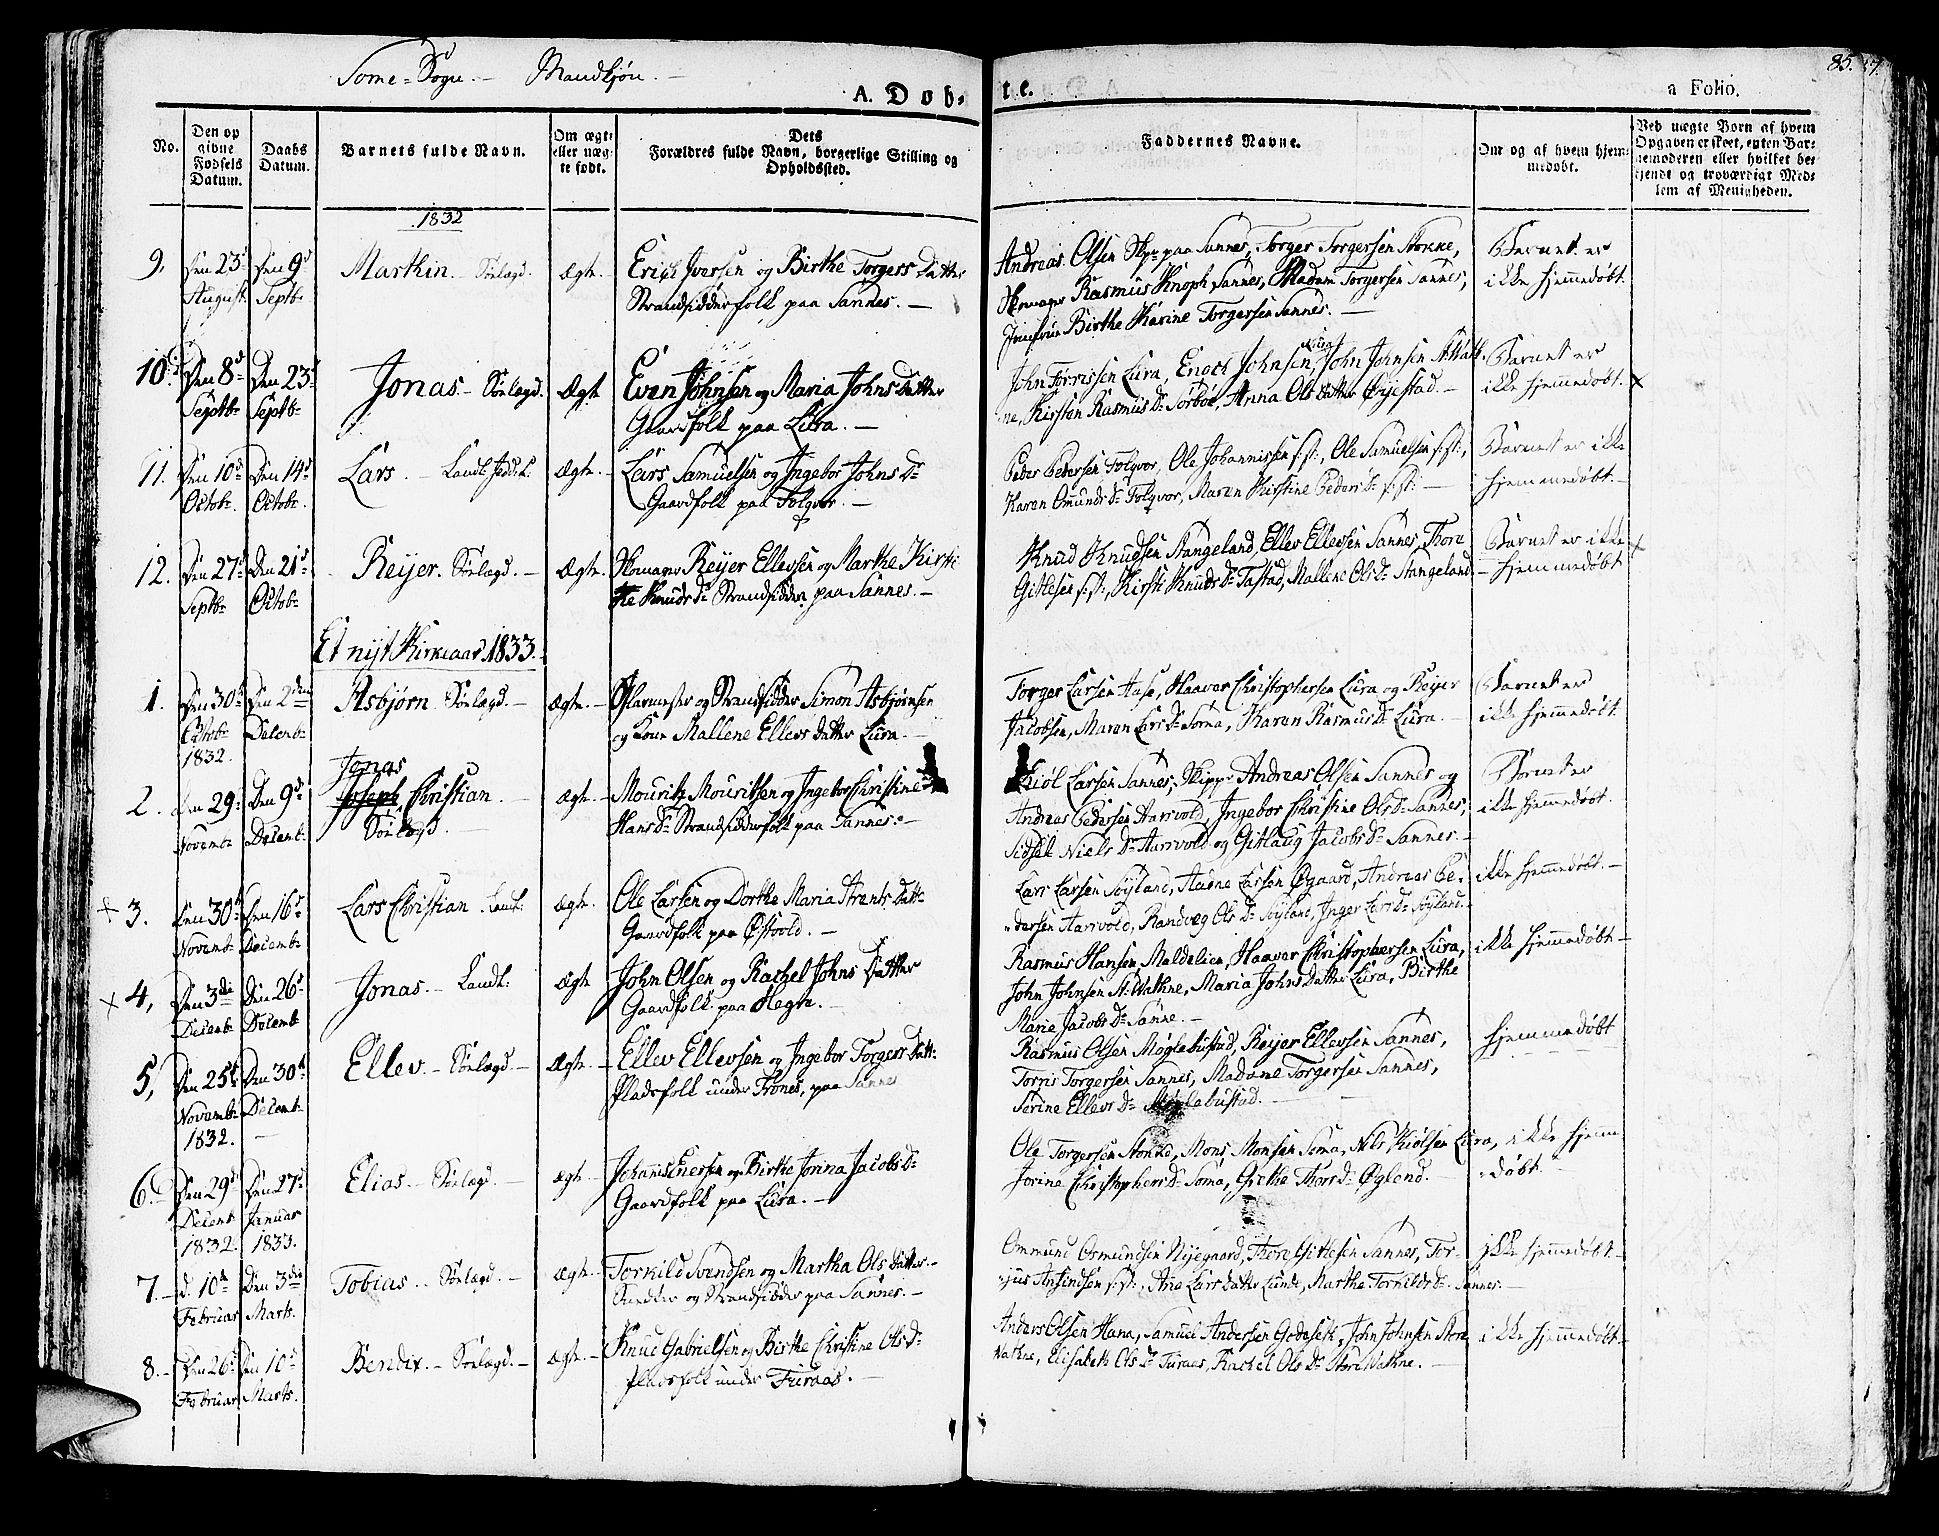 Some-Sogn. - Mandkjøn. -
85.
A. Døbte.
a Folio.
No.
Den opgivne Fødsels Datum.
Daabs Datum.
Barnets fulde Navn.
Om ægte eller uægte født.
Dets Forældres fulde Navn, borgerlige Stilling og Opholdssted.
Faddernes Navne.
Om og af hvem hjemmedøbt.
Ved uægte Børn af hvem Opgaven er skeet, enten Barnemoderen eller hvilket bekjendt og troværdigt Medlem af Menigheden.
1832
9, Den 23 August Den 9d Septbr Marthin. Sönlægd. Ægte.
Erich Iversen og Birthe Torgers Datter
Strandsidderfolk paa Sannes. -
Andreas Olsen paa Sannes, Torger Torgersen Stokke,
Rasmus Knoph Sannes, Madam Torgersen Sannes,
Jomfrue Birthe Karine Torgersen Sannes. -
Barnet er
ikke hjemmedøbt.
10. Den 8d Septbr Den 23d Septbr Jonas. - Sönlægd. Ægte
Even Johnsen og Maria Johns datter
Gaardfolk paa Lura. -
John Tørrissen Lura, Enoch Johnsen Lura, John Johnsen St. Wath-
ne, Kirsten Rasmus Dr Sørbøe, Anna Ols datter Øyestad. -
Barnet er
ikke hjemmedøbt. x
11. Den 10d Octobr. Den 14d Octobr. Lars. - Landt. Ægte. -
Lars Samuelsen og Ingebor Johns Dr
Gaardfolk paa Folqvor. -
Peder Pedersen Folqvor, Ole Johannissen s: st:, Ole Samuelsen s: st:,
Karen Omunds Dr Folqvor, Maren Kirstine Peders Dr s: st: -
Barnet er ikke
hjemmedøbt. -
12. Den 27d Septbr Den 21d Octobr Reijer. Sönlægd. - Ægte.
Reijer Ellevsen og Marthe Kirsti-
ne Knuds Dr Strandsidder paa Sannes. -
Knud Knudsen Stangeland, Ellev Ellevsen Sannes, Thore
Gitlesen s: st:, Kirsti Knuds Dr Tastad, Mallene Ols Dr Stangeland. -
Barnet er ikke
hjemmedøbt x
Et nyt Kirkeaar 1833.
1. Den 30d Octobr 1832. Den 2den Decembr Asbjörn Sönlægd. - ægte. -
og Strandsidder Simon Asbjörnsen
og Kone Mallene Ellevs datter Lura. -
Torger Larsen Aase, Haaver Christophersen Lura og Reijer
Jacobsen, Maren Lars Dr Soma, Karen Rasmus Dr Lura. -
Barnet er
ikke hjemmedøbt.
2. Den 29. Novembr Den 9d Decembr. Jonas
Joseph Christian. -
Sönlægd. ægte. -
Mouritz Mouritsen og Ingebor Christine
Hans Dr Strandsidderfolk paa Sannes. -
Kiöl Larsen Sannes, Skippr Andreas Olsen Sannes og
Andreas Pedersen Aarsvold, Ingebor Christine Ols Dr Sannes,
Sidsel Niels Dr Aarsvold og Gitlaug Jacobs Dr Sannes. -
Barnet er
ikke hjemmedøbt.
x 3. Den 30d Novembr Den 16d Decembr Lars Christian. Landt. ægte.
Ole Larsen og Dorthe Maria Arents datt:
Gaardfolk paa Østvold. -
Lars Larsen Söyland, Aadne Larsen Øgaard, Andreas Pe-
dersen Aarsvold, Randveg Ols Dr Söyland, Inger Lars Dr Söyland. -
ikke hjemmedøbt. -
x 4, Den 3die Decembr Den 26d Decembr Jonas. - Landt: Ægte
John Olsen og Rachel Johns Datter
Gaardfolk paa Hegre. -
Rasmus Hansen Maldelien, Haaver Christophersen Lura,
John Johnsen St. Wathne, Maria Johns datter Lura, Birthe
Marie Jacobs Dr Sanne. -
ikke hjemmedøbt -
5, Den 25d Novembr 1832. Den 30d Decembr. - Ellev. - Sönlægd - Ægte. -
Ellev Ellevsen og Ingebor Torgers Datt:
Pladsfolk under Trones, paa Sannes
Rasmus Olsen Møglebustad, Reijer Ellevsen Sannes,
Torris Torgersen Sannes, Madame Torgersen Sannes,
Serine Ellevs Dr Møglebustad. -
hjemmedøbt
6. Den 29d Decembr 1832. Den 27d Januar 1833. Elias - Sönlægd. - ægte. -
Johannis Enersen og Birthe Jorina Jacobs Dr
Gaardfolk paa Lura. -
Ole Torgersen Stokke, Mons Monsen Soma, Nils Kiölsen Lura,
Jorine Christophers Dr Soma, Girthe Thors Dr Øglend. -
ikke hjemme-
døbt.
7. - d. 10d Februar Den 3die Marts. Tobias. - Sönlægd. - ægte. -
Torkild Svendsen og Martha Ols datter. -
og Strandsidder paa Sannes. -
Ommund Osmundsen Nijegaard, Thore Gitlesen Sannes, Tor-
Ansindsen s: st:, Ane Lars datter Lunde, Marthe Torkilds Dr Sannes. -
ikke hjemmedøbt -
8. - Den 26d Februar Den 10d Marts. Bendix. - Sönlægd. - ægte. -
Knud Gabrielsen og Birthe Christine Ols Dr
Pladsfolk under Furaas. -
Anders Olsen Hana, Samuel Andersen Godeset, John Johnsen Store
Wathne, Elisabeth Ols Dr Furaas, Rachel Ols Dr Store Wathne. -
ikke hjemmedøbt -